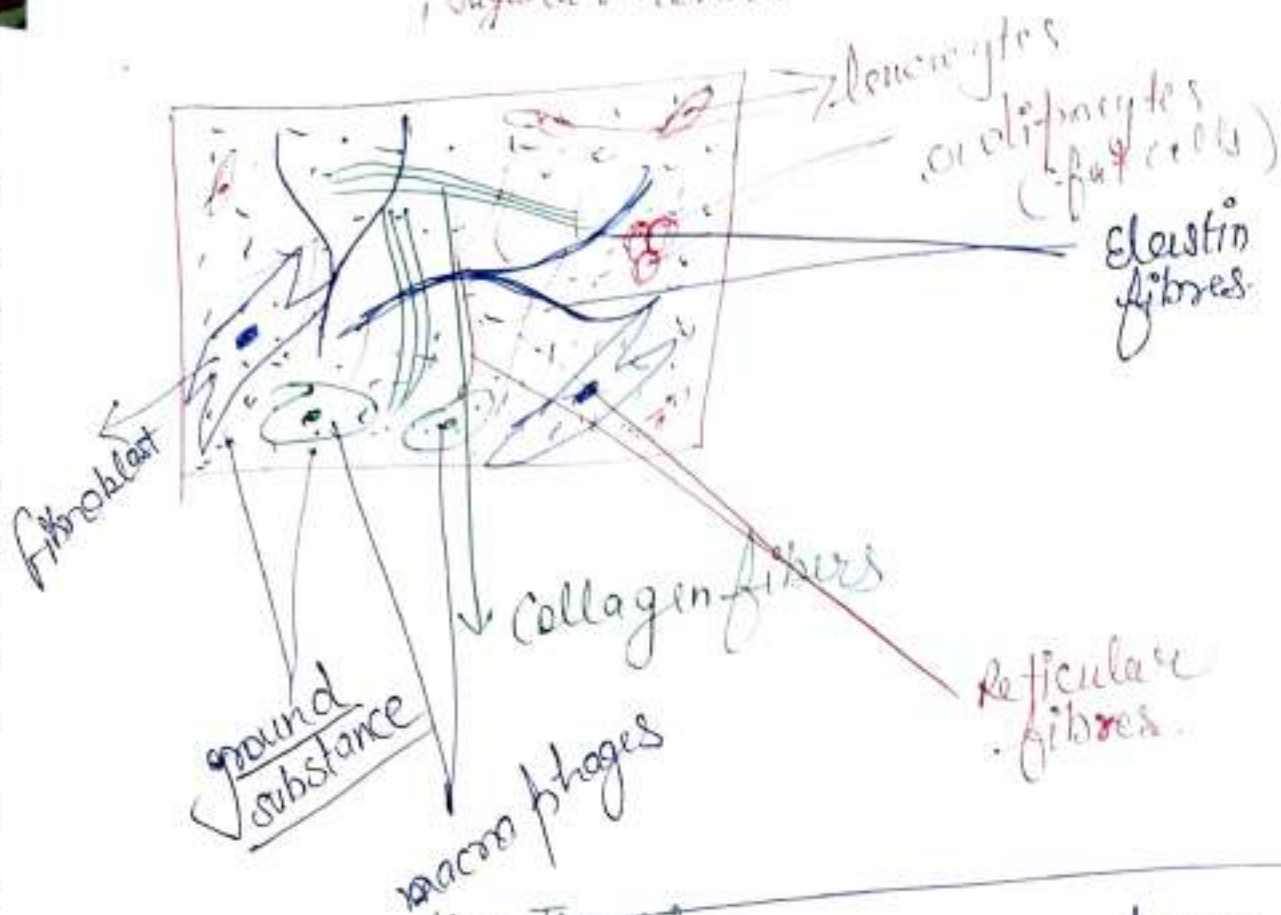 leucocytes
(fat cells)
Elastin
fibres.
fibroblast
Collagen fibers
Reticular
fibres.
ground
substance
macrophages